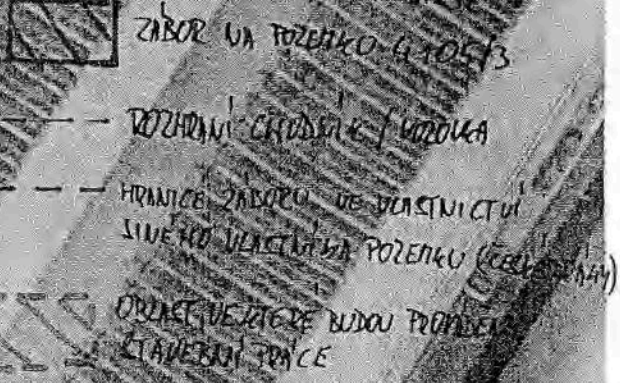 ZÁBOR NA POZEMKU 4105/3
ROZHRANÍ CHODNÍK / VOZOVKA
HRANICE ZÁBORU VE VLASTNICTVÍ
JINÉHO VLASTNÍKA POZEMKU
OBLAST, VE KTERÉ BUDOU
STAVEBNÍ PRÁCE